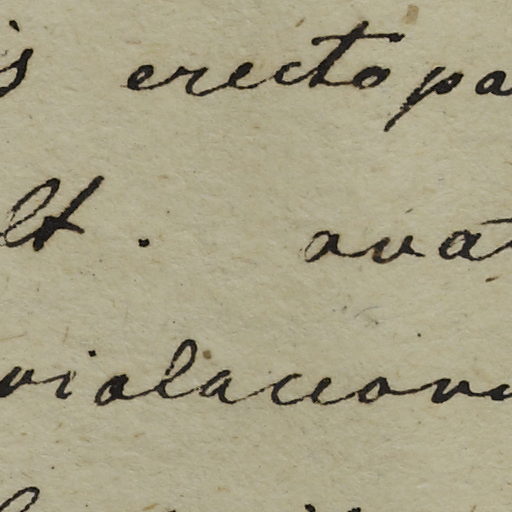 s erectopa
lt. ovat
violaceovi